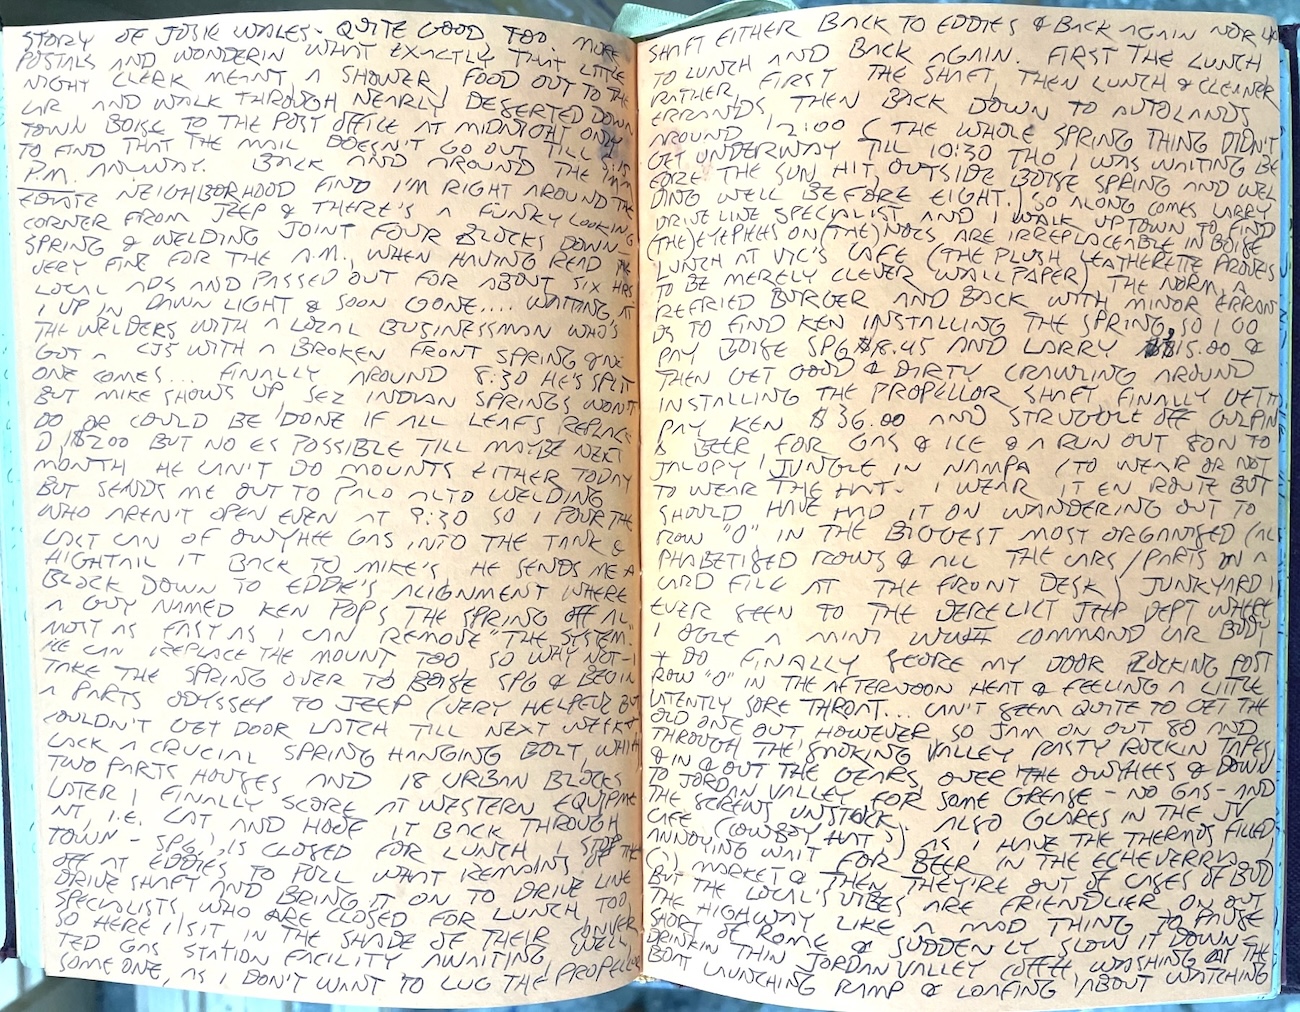 STORY OF JOSIE WALES. QUITE GOOD TOO. MORE
POSTALS AND WONDERIN WHAT EXACTLY THAT LITTLE
NIGHT CLERK MEANT, A SHOWER, FOOD OUT TO THE
CAR AND WALK THROUGH NEARLY DESERTED DOWN
TOWN BOISE TO THE POST OFFICE AT MIDNIGHT ONLY
TO FIND THAT THE MAIL DOESN'T GO OUT TILL
P.M. ANYWAY. BACK AND AROUND THE IMM
EDIATE NEIGHBORHOOD FIND I'M RIGHT AROUND THE
CORNER FROM JEEP & THERE'S A FUNKY LOOKING
SPRING & WELDING JOINT FOUR BLOCKS DOWN
VERY FINE FOR THE A.M., WHEN HAVING READ THE
LOCAL ADS AND PASSED OUT FOR ABOUT SIX HRS.
I UP IN DAWN LIGHT & SOON GONE.... WAITING AT
THE WELDERS WITH A LOCAL BUSINESSMAN WHO'S
GOT A CJ5 WITH A BROKEN FRONT SPRING & NO
ONE COMES... FINALLY AROUND 8:30 HE'S SPLIT
BUT MIKE SHOWS UP, SEZ INDIAN SPRINGS WON'T
DO OR COULD BE DONE IF ALL LEAFS REPLACE
D, $200 BUT NO ES POSSIBLE TILL MAYBE NEXT
MONTH HE CAN'T DO MOUNTS EITHER TODAY
BUT SENDS ME OUT TO PALO ALTO WELDING
WHO AREN'T OPEN EVEN AT 9:30 SO I POUR THE
LAST CAN OF OWYHEE GAS INTO THE TANK &
HIGHTAIL IT BACK TO MIKE'S. HE SENDS ME A
BLOCK DOWN TO EDDIE'S ALIGNMENT WHERE
A GUY NAMED KEN POPS THE SPRING OFF AL
MOST AS FAST AS I CAN REMOVE "THE SYSTEM"
HE CAN REPLACE THE MOUNT TOO, SO WHY NOT - I
TAKE THE SPRING OVER TO BOISE SPG & BEGIN
A PARTS ODYSSEY TO JEEP (VERY HELPFUL BUT
COULDN'T GET DOOR LATCH TILL NEXT WEEK &
LACK A CRUCIAL SPRING HANGING BOLT, WHICH
TWO PARTS HOUSES AND 18 URBAN BLOCKS
LATER I FINALLY SCORE AT WESTERN EQUIPME
NT, I.E. CAT AND HOOF IT BACK THROUGH
TOWN - SPG, IS CLOSED FOR LUNCH I STOP
OFF AT EDDIES TO PULL WHAT REMAINS OF THE
DRIVE SHAFT AND BRING IT ON TO DRIVE LINE
SPECIALISTS, WHO ARE CLOSED FOR LUNCH TOO,
SO HERE I SIT IN THE SHADE OF THEIR CONVER
TED GAS STATION FACILITY AWAITING, WELL,
SOMEONE, AS I DON'T WANT TO LUG THE PROPELLOR
SHAFT EITHER BACK TO EDDIES & BACK AGAIN NOR
TO LUNCH AND BACK AGAIN. FIRST THE LUNCH
RATHER, FIRST THE SHAFT, THEN LUNCH & CLEANER
ERRANDS THEN BACK DOWN TO AUTOLANDS
AROUND 12:00 (THE WHOLE SPRING THING DIDN'T
GET UNDERWAY TILL 10:30 THO I WAS WAITING BE
FORE THE SUN HIT OUTSIDE BOISE SPRING AND WEL
DING WELL BEFORE EIGHT.) SO ALONG COMES LARRY
DRIVELINE SPECIALIST AND I WALK UPTOWN TO FIND
(THE) EYEPIECES ON (THE) NOCS ARE IRREPLACEABLE IN BOISE
LUNCH AT VIC'S CAFE (THE PLUSH LEATHERETTE PROVES
TO BE MERELY CLEVER WALLPAPER) THE NORM, A
REFRIED BURGER AND BACK WITH MINOR ERRAN
DS TO FIND KEN INSTALLING THE SPRING, SO I GO
PAY BOISE SPG $18.45 AND LARRY $15.00 &
THEN GET GOOD & DIRTY CRAWLING AROUND
INSTALLING THE PROPELLOR SHAFT. FINALLY GETTIN
PAY KEN $36.00 AND STRUGGLE OFF GULPIN
A BEER FOR GAS & ICE & A RUN OUT 80N TO
JALOPY JUNGLE IN NAMPA (TO WEAR OR NOT
TO WEAR THE HAT - I WEAR IT EN ROUTE BUT
SHOULD HAVE HAD IT ON WANDERING OUT TO
ROW "O" IN THE BIGGEST MOST ORGANISED (AL
PHABETISED ROWS & ALL THE CARS/PARTS IN A
CARD FILE AT THE FRONT DESK) JUNKYARD I
EVER SEEN TO THE DERELICT JEEP DEPT WHERE
I OGLE A MINT COMMAND CAR BODY
+ DO FINALLY SCORE MY DOOR LOCKING POST
ROW "O" IN THE AFTERNOON HEAT & FEELING A LITTLE
LATENTLY SORE THROAT... CAN'T SEEM QUITE TO GET THE
OLD ONE OUT HOWEVER SO JAM ON OUT 80 AND
THROUGH THE SMOKING VALLEY RASTY ROCKIN TAPES
& IN & OUT THE GEARS OVER THE OWYHEES & DOWN
TO JORDAN VALLEY FOR SOME GREASE - NO GAS - AND
THE SCREWS UNSTUCK. ALSO GLARES IN THE JV
CAFE (COWBOY HATS) AS I HAVE THE THERMOS FILLED,
ANNOYING WAIT FOR BEER IN THE ECHEVERRIA
(?) MARKET & THEN THEY'RE OUT OF CASES OF BUD
BUT THE LOCAL'S VIBES ARE FRIENDLIER ON OUT
THE HIGHWAY LIKE A MAD THING TO PAUSE
SHORT OF ROME & SUDDENLY SLOW IT DOWN
DRINKIN THIN JORDAN VALLEY COFFEE, WASHING AT THE
BOAT LAUNCHING RAMP & LOAFING 'BOUT WATCHING